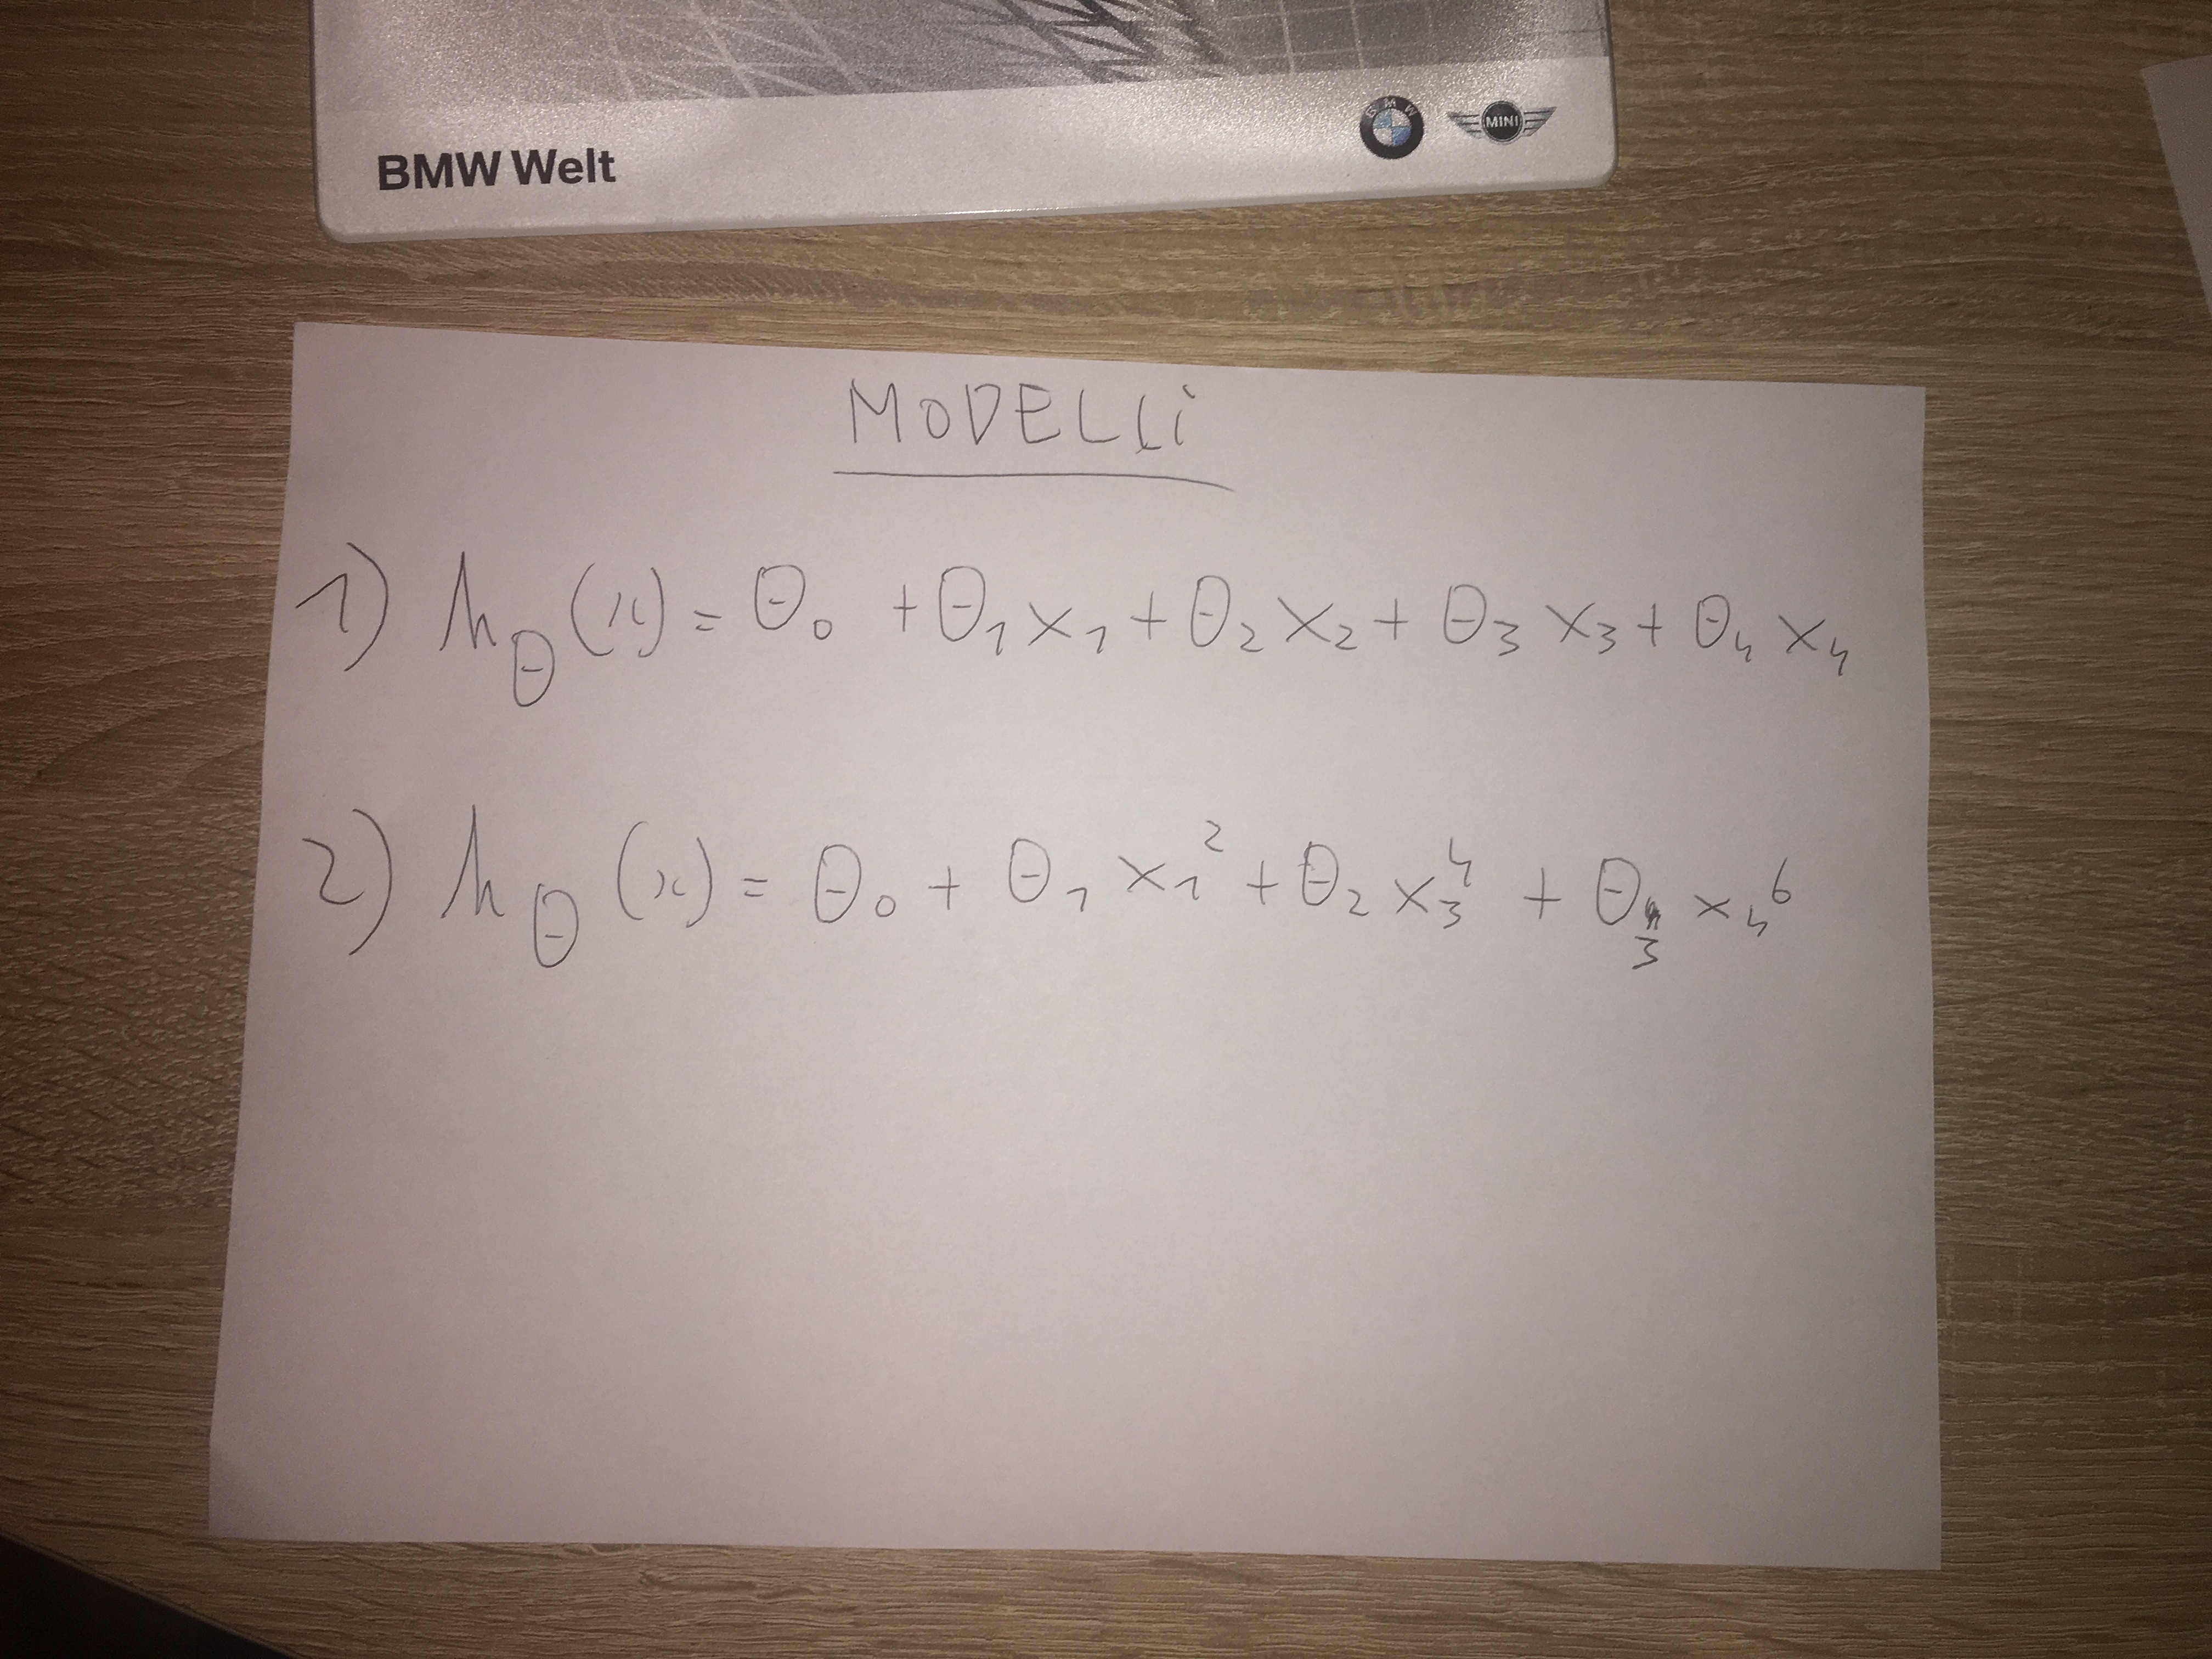 BMW Welt
BMW
MINI
MODELLi
1) h_θ(x) = θ₀ + θ₁ x₁ + θ₂ x₂ + θ₃ x₃ + θ₄ x₄
2) h_θ (x) = θ₀ + θ₁ x₁² + θ₂ x₃⁴ + θ₃ x₄⁶